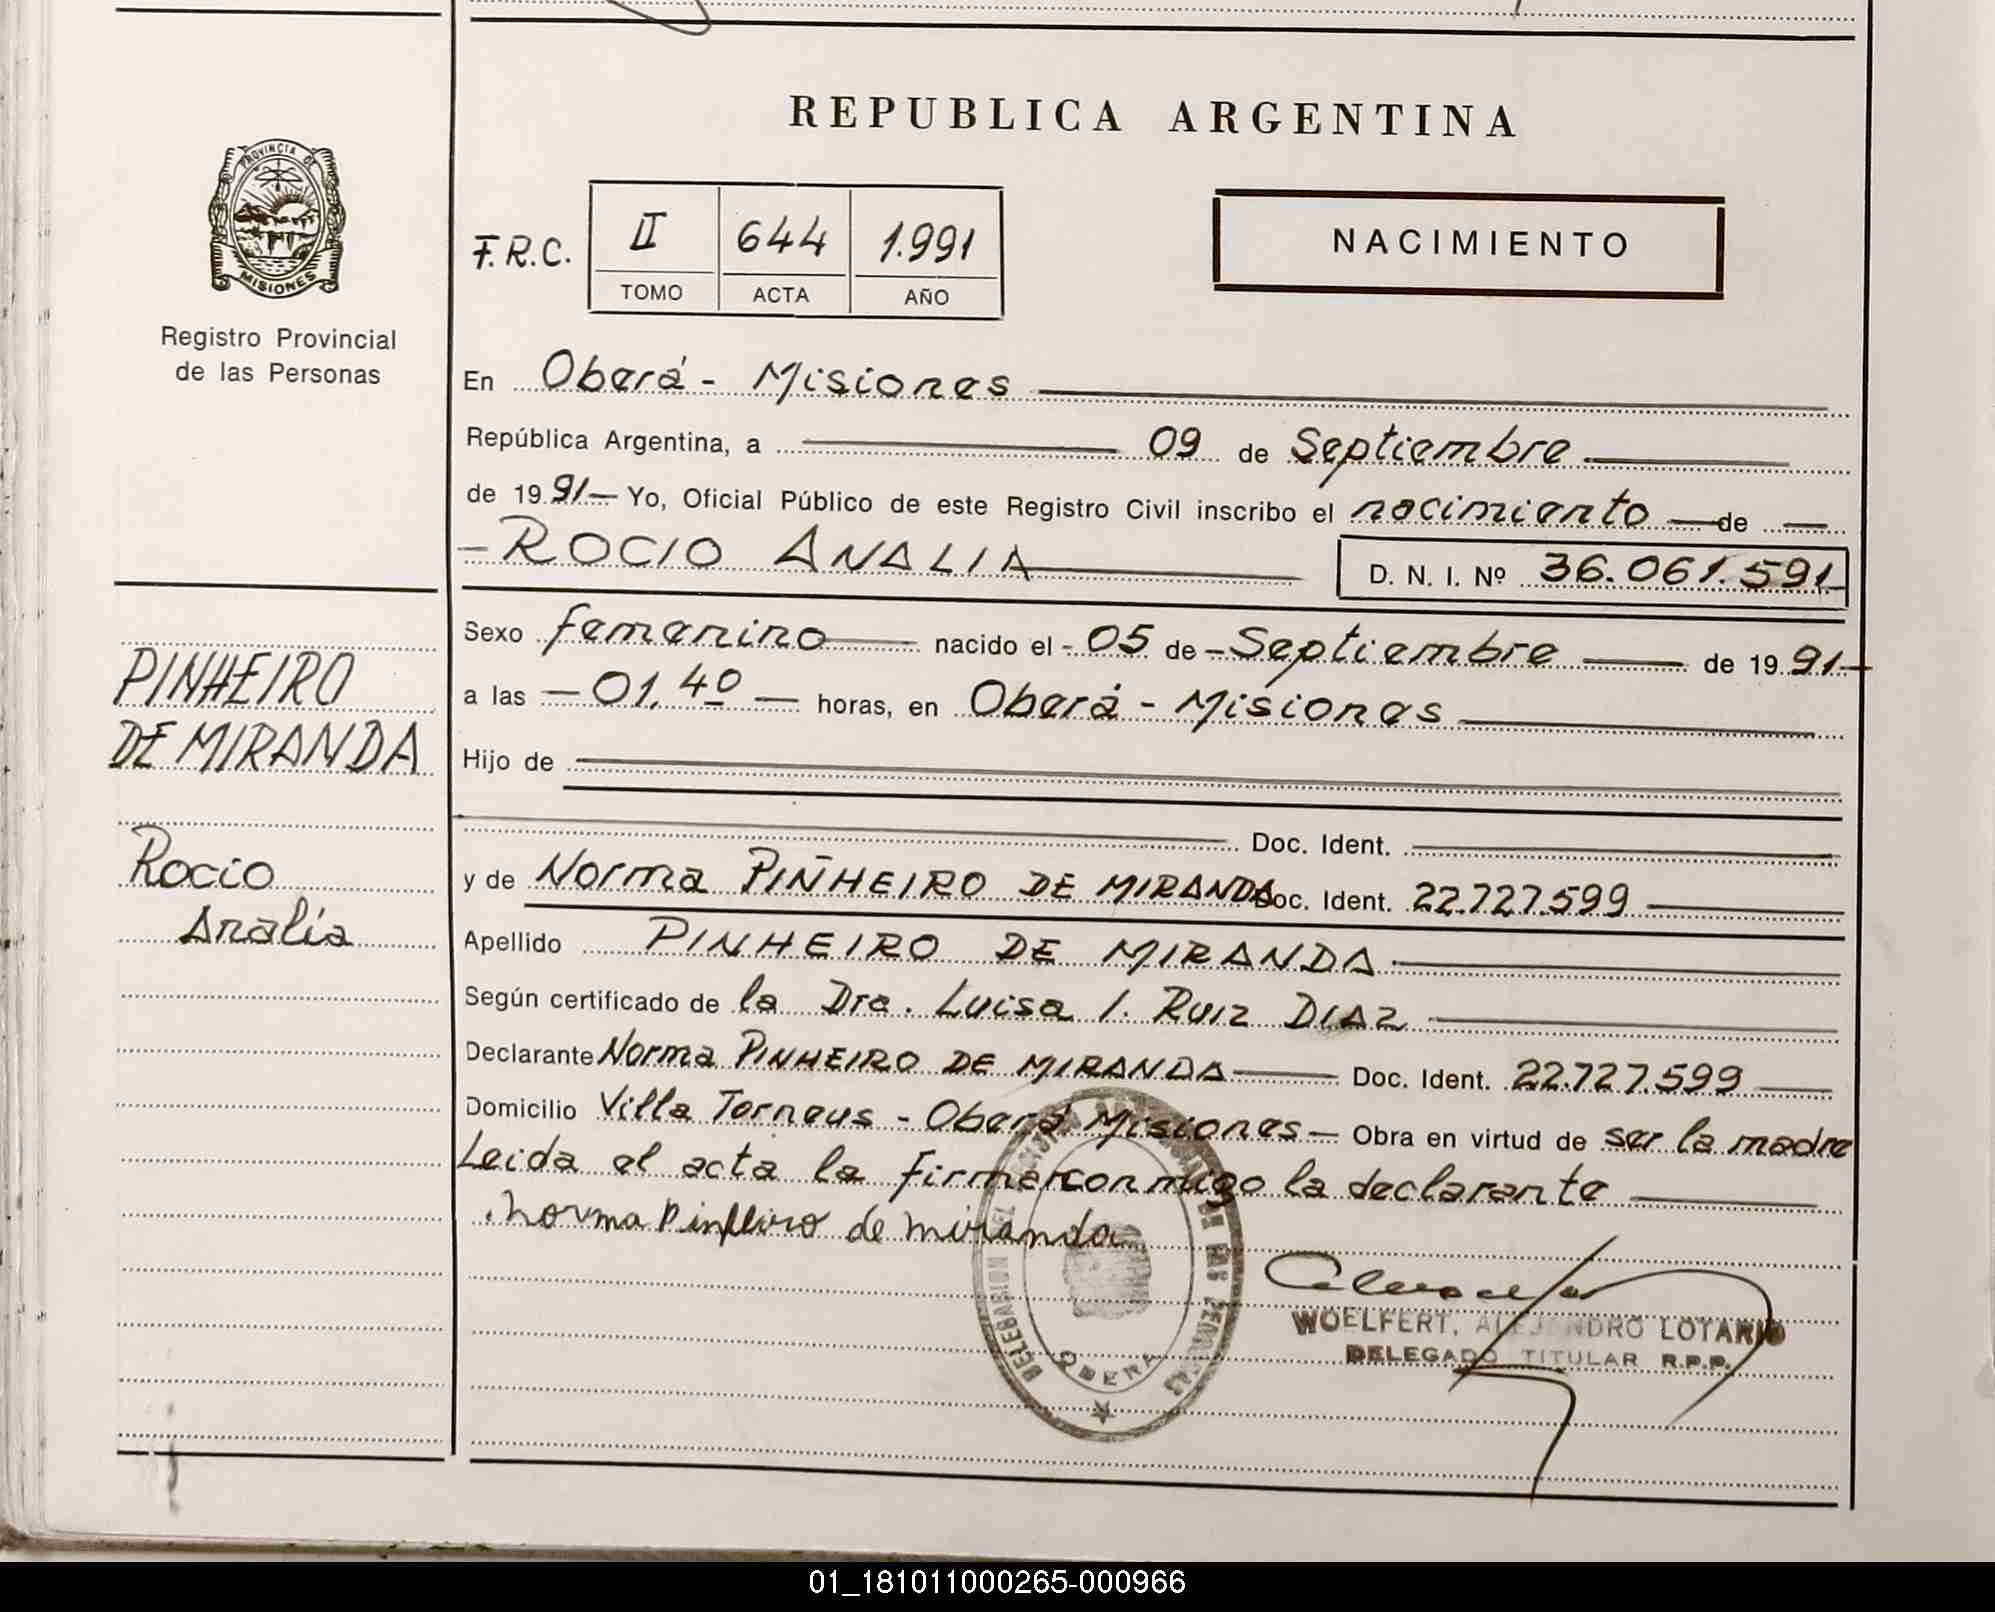 REPUBLICA ARGENTINA
PROVINCIA DE
MISIONES
Registro Provincial
de las Personas
F.R.C.
II 644 1.991
TOMO ACTA AÑO
NACIMIENTO
En Oberá - Misiones
República Argentina, a 09 de Septiembre
de 1991 Yo, Oficial Público de este Registro Civil inscribo el nacimiento de
ROCIO ANALIA D. N. I. Nº 36.061.591
Sexo femenino nacido el 05 de Septiembre de 1991
a las 01.40 horas, en Oberá - Misiones
Hijo de
Doc. Ident.
y de Norma PIÑHEIRO DE MIRANDA Doc. Ident. 22.727.599
Apellido PINHEIRO DE MIRANDA
Según certificado de la Dra. Luisa I. RUIZ DIAZ
Declarante Norma PINHEIRO DE MIRANDA Doc. Ident. 22.727.599
Domicilio Villa Torneus - Oberá Misiones Obra en virtud de ser la madre
Leida el acta la firma conmigo la declarante
Norma Pinheiro de Miranda
PINHEIRO
DE MIRANDA
Rocio
Analía
WOELFERT, ALEJANDRO LOTARIO
DELEGADO TITULAR R.P.P.
OBERA
01_181011000265-000966